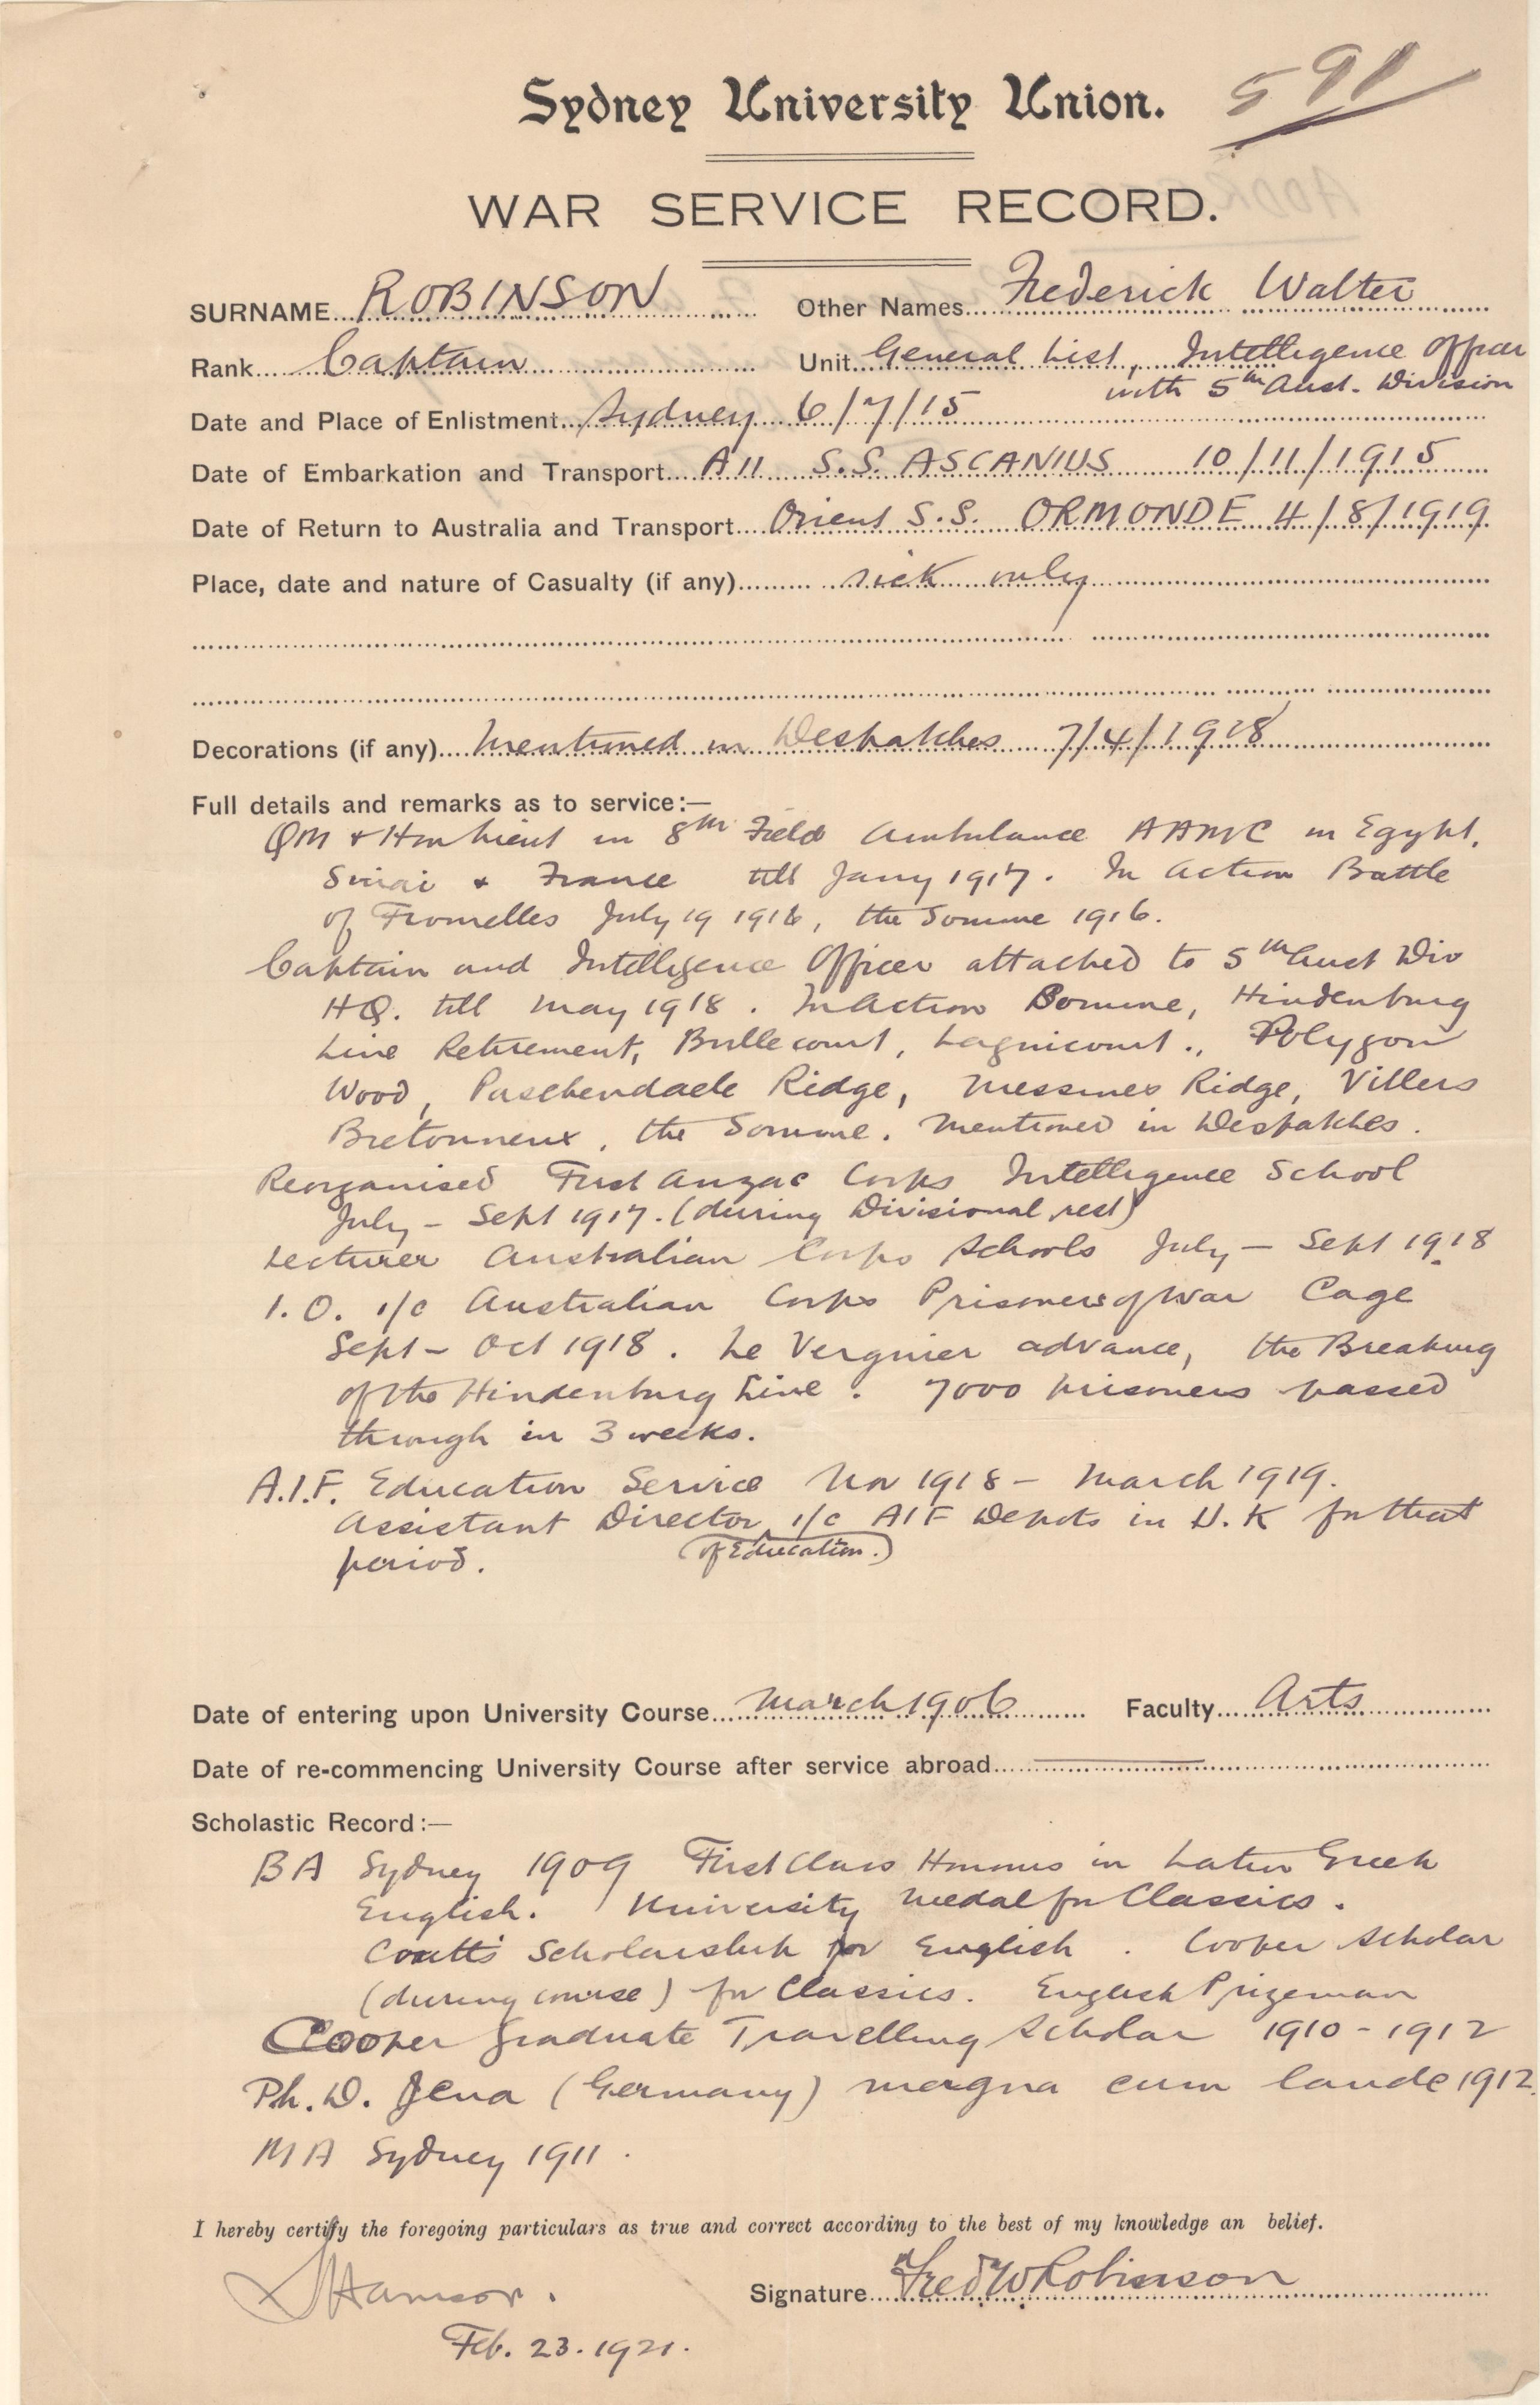 Sydney University Union. 591
WAR SERVICE RECORD.
SURNAME ROBINSON Other Names Frederick Walter
Rank Captain Unit General List, Intelligence Officer
with 5th Aust. Division
Date and Place of Enlistment Sydney 6/7/15
Date of Embarkation and Transport A11 S.S. ASCANIUS 10/11/1915
Date of Return to Australia and Transport Orient S.S. ORMONDE 4/8/1919
Place, date and nature of Casualty (if any) sick only
Decorations (if any) Mentioned in Despatches 7/4/1918
Full details and remarks as to service:—
QM & Hon Lieut in 8th Field Ambulance AAMC in Egypt,
Sinai & France till Jany 1917. In action Battle
of Fromelles July 19 1916, the Somme 1916.
Captain and Intelligence Officer attached to 5th Aust Div
HQ. till May 1918. In action Somme, Hindenburg
Line Retirement, Bullecourt, Lagnicourt., Polygon
Wood, Paschendaele Ridge, Messines Ridge, Villers
Bretonneux, the Somme. Mentioned in Despatches.
Reorganised First Anzac Corps Intelligence School
July - Sept 1917. (during Divisional rest)
Lecturer Australian Corps Schools July - Sept 1918
I.O. i/c Australian Corps Prisoners of War Cage
Sept - Oct 1918. Le Verguier advance, the Breaking
of the Hindenburg Line. 7000 prisoners passed
through in 3 weeks.
A.I.F. Education Service Nov 1918 - March 1919.
Assistant Director i/c AIF Depots in U.K for that
(of Education.)
period.
Date of entering upon University Course March 1906 Faculty Arts
Date of re-commencing University Course after service abroad
Scholastic Record:—
BA Sydney 1909 First Class Honours in Latin Greek
English. University Medal for Classics.
Coutts Scholarship for English. Cooper Scholar
(during course) for Classics. English Prizeman
Cooper Graduate Travelling Scholar 1910-1912
Ph.D. Jena (Germany) magna cum laude 1912.
MA Sydney 1911.
I hereby certify the foregoing particulars as true and correct according to the best of my knowledge an belief.
Signature Fred W Robinson
Feb. 23. 1921.